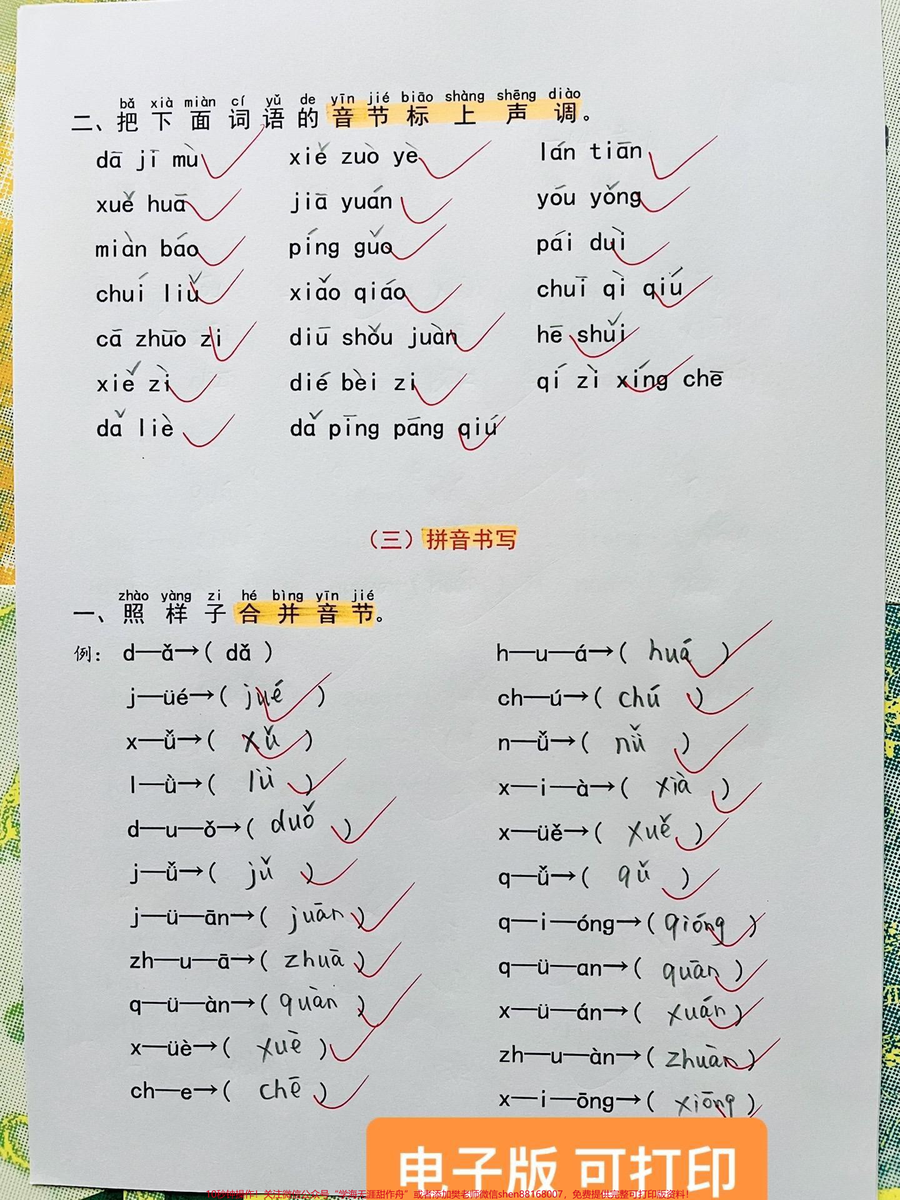 bǎ xià miàn cí yǔ de yīn jié biāo shàng shēng diào
二、把下面词语的音节标上声调。
dā jī mù xiě zuò yè lán tiān
xuě huā jiā yuán yóu yǒng
miàn báo píng guǒ pái duì
chuí liǔ xiǎo qiáo chuī qì qiú
cā zhuō zi diū shǒu juàn hē shuǐ
xiě zì dié bèi zi qí zì xíng chē
dǎ liè dǎ pīng pāng qiú
（三）拼音书写
zhào yàng zi hé bìng yīn jié
一、照样子合并音节。
例： d—ǎ→( dǎ ) h—u—á→( huá )
j—üé→( jué ) ch—ú→( chú )
x—ǚ→( xǔ ) n—ǚ→( nǚ )
l—ǜ→( lǜ ) x—i—à→( xià )
d—u—ǒ→( duǒ ) x—üě→( xuě )
j—ǚ→( jǔ ) q—ǚ→( qǔ )
j—ü—ān→( juān ) q—i—óng→( qióng )
zh—u—ā→( zhuā ) q—ü—an→( quān )
q—ü—àn→( quàn ) x—ü—án→( xuán )
x—üè→( xuè ) zh—u—àn→( zhuàn )
ch—e→( chē ) x—i—ōng→( xiōng )
电子版 可打印
10秒钟操作！关注微信公众号“学海无涯甜作舟”或者添加樊老师微信shen88168007，免费提供完整可打印版资料！